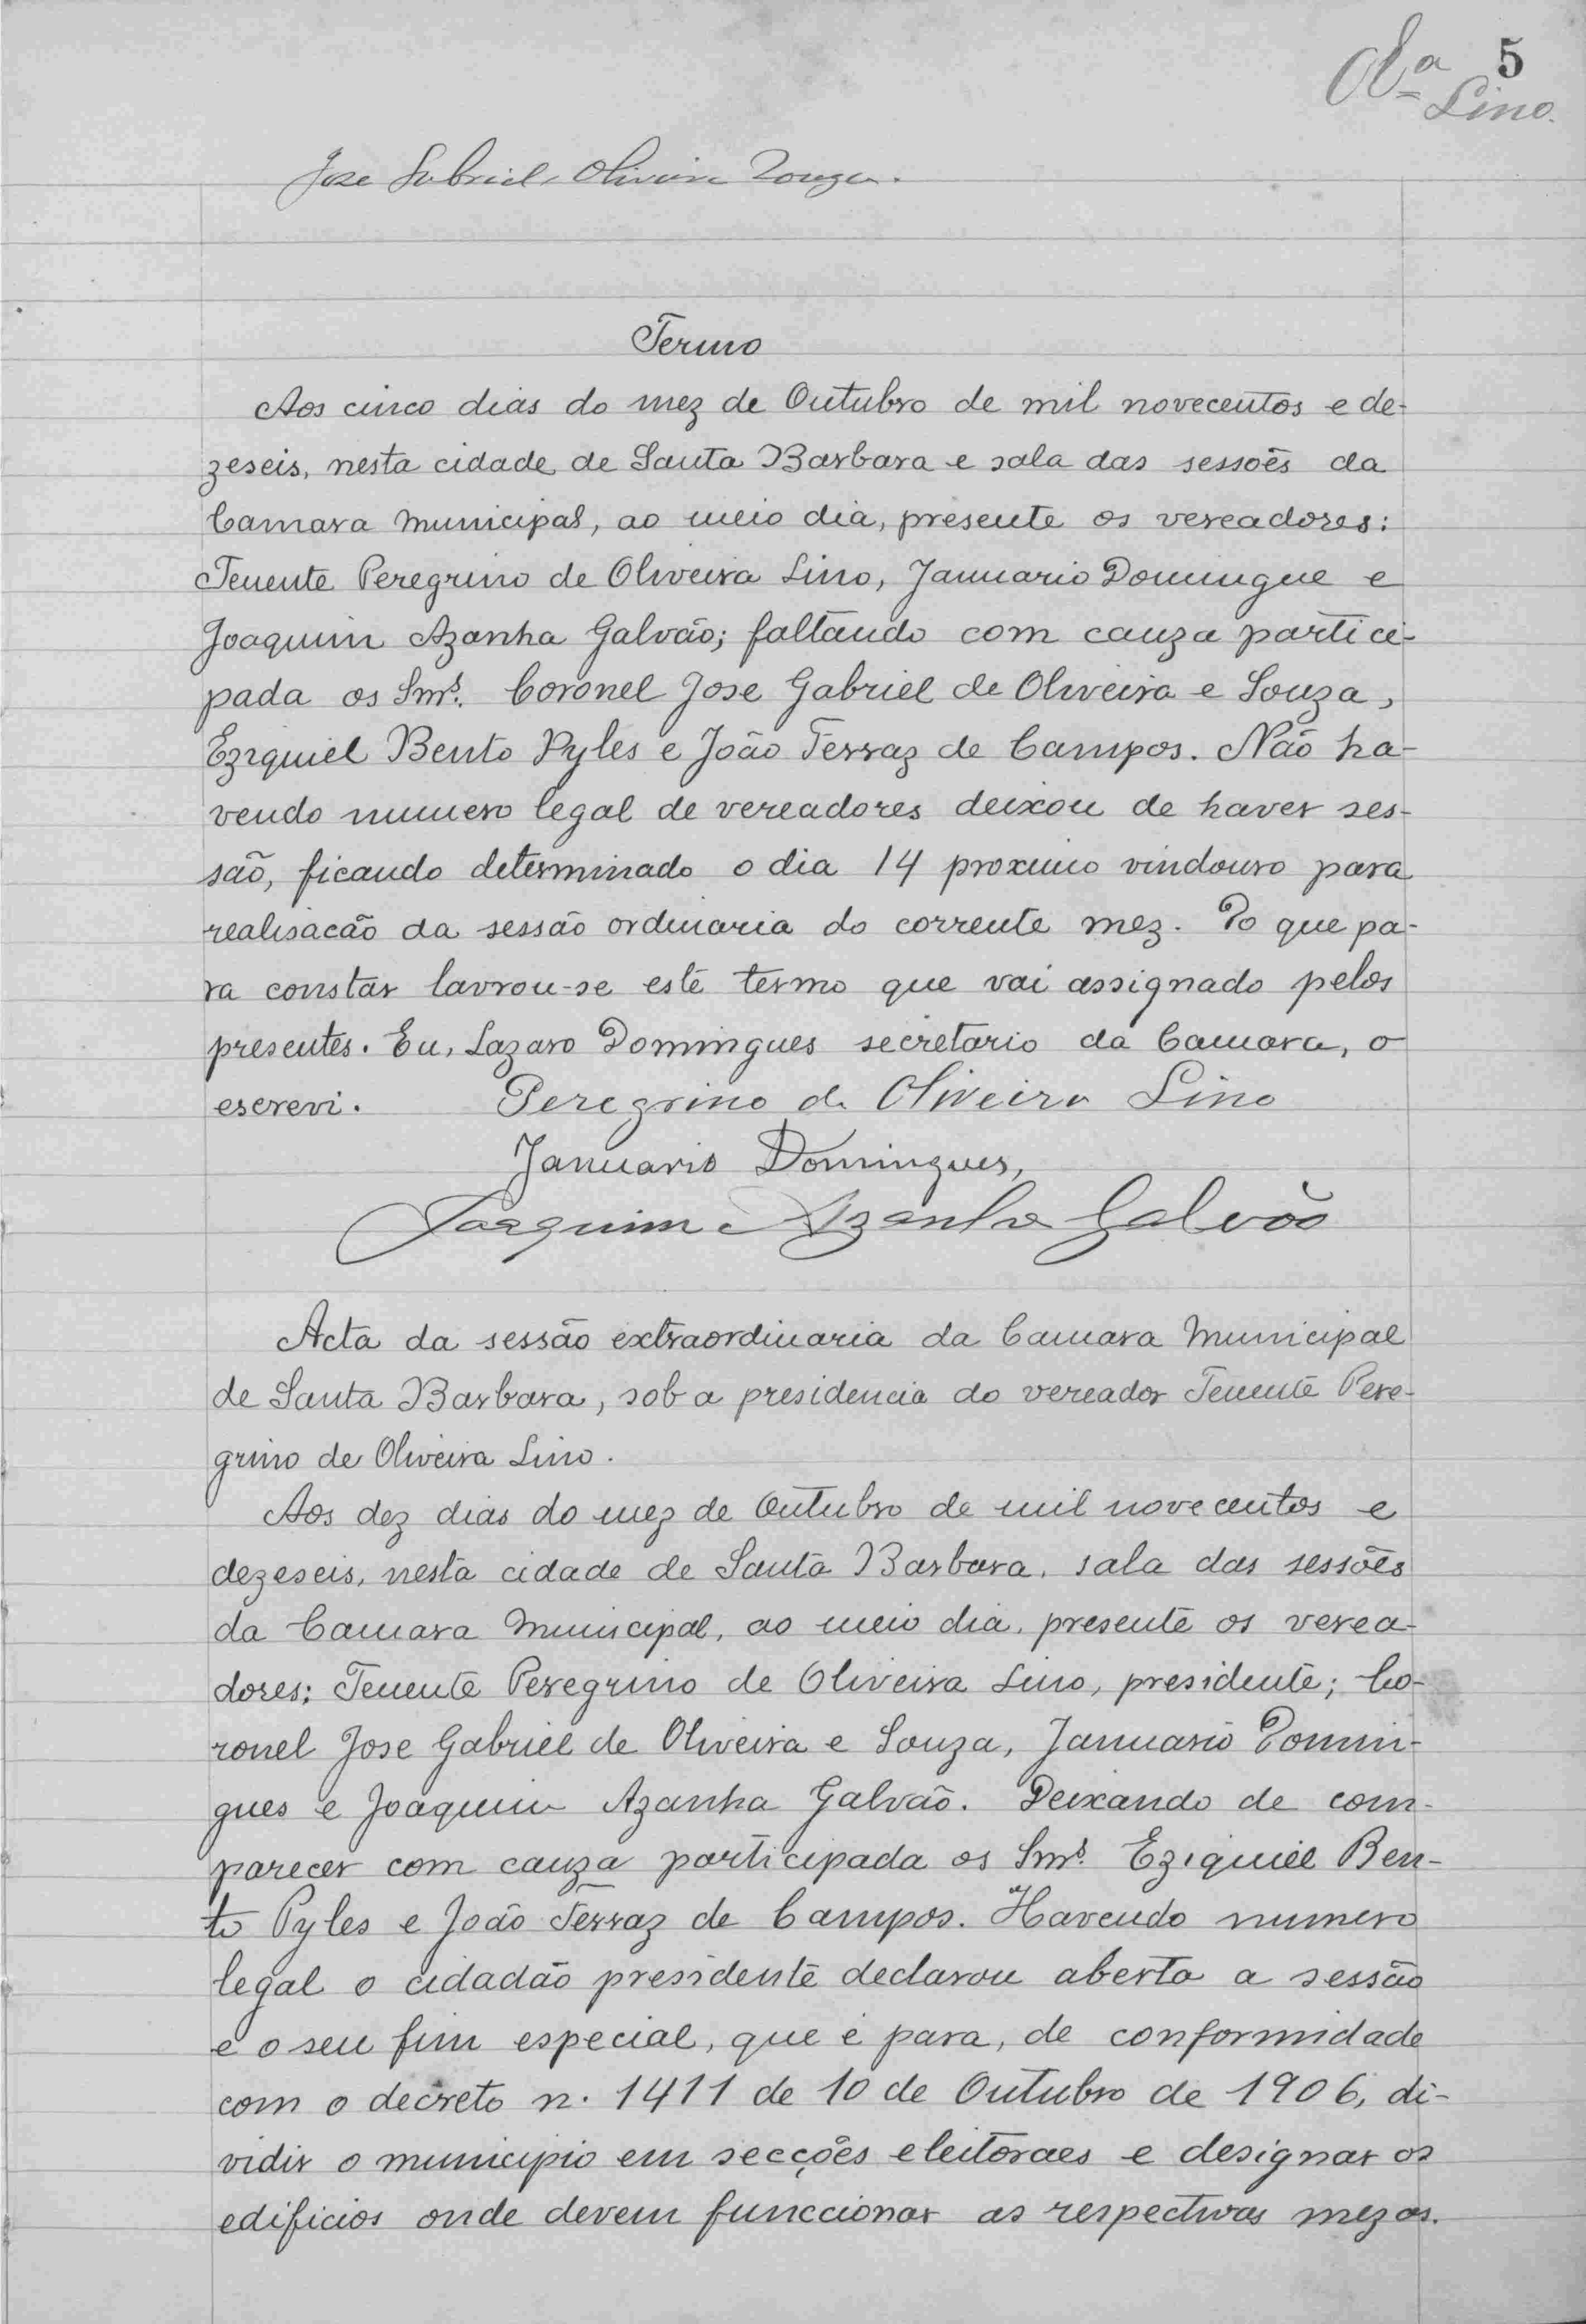 5
Olª Lino.
Jose Gabriel Oliveira Souza.
Termo
Aos cinco dias do mez de Outubro de mil novecentos e de-
zeseis, nesta cidade de Santa Barbara e sala das sessões da
Camara Municipal, ao meio dia, presente os vereadores:
Tenente Peregrino de Oliveira Lino, Januario Domingue e
Joaquim Azanha Galvão; faltando com cauza partici-
pada os Snrs. Coronel Jose Gabriel de Oliveira e Souza,
Eziquiel Bento Pyles e João Ferraz de Campos. Não ha-
vendo numero legal de vereadores deixou de haver ses-
são, ficando determinado o dia 14 proximo vindouro para
realisacão da sessão ordinaria do corrente mez. Do que pa-
ra constar lavrou-se este termo que vai assignado pelos
presentes. Eu, Lazaro Domingues secretario da Camara, o
escrevi. Peregrino de Oliveira Lino
Januario Domingues,
Joaquim Azanha Galvão
Acta da sessão extraordinaria da Camara Municipal
de Santa Barbara, sob a presidencia do vereador Tenente Pere-
grino de Oliveira Lino.
Aos dez dias do mez de Outubro de mil novecentos e
dezeseis, nesta cidade de Santa Barbara, sala das sessões
da Camara Municipal, ao meio dia, presente os verea-
dores: Tenente Peregrino de Oliveira Lino, presidente; Co-
ronel Jose Gabriel de Oliveira e Souza, Januario Domin-
gues e Joaquim Azanha Galvão. Deixando de com-
parecer com cauza participada os Snrs. Eziquiel Ben-
to Pyles e João Ferraz de Campos. Havendo numero
legal o cidadão presidente declarou aberta a sessão
e o seu fim especial, que é para, de conformidade
com o decreto n. 1411 de 10 de Outubro de 1906, di-
vidir o municipio em secções eleitoraes e designar os
edificios onde devem funccionar as respectivas mezas.